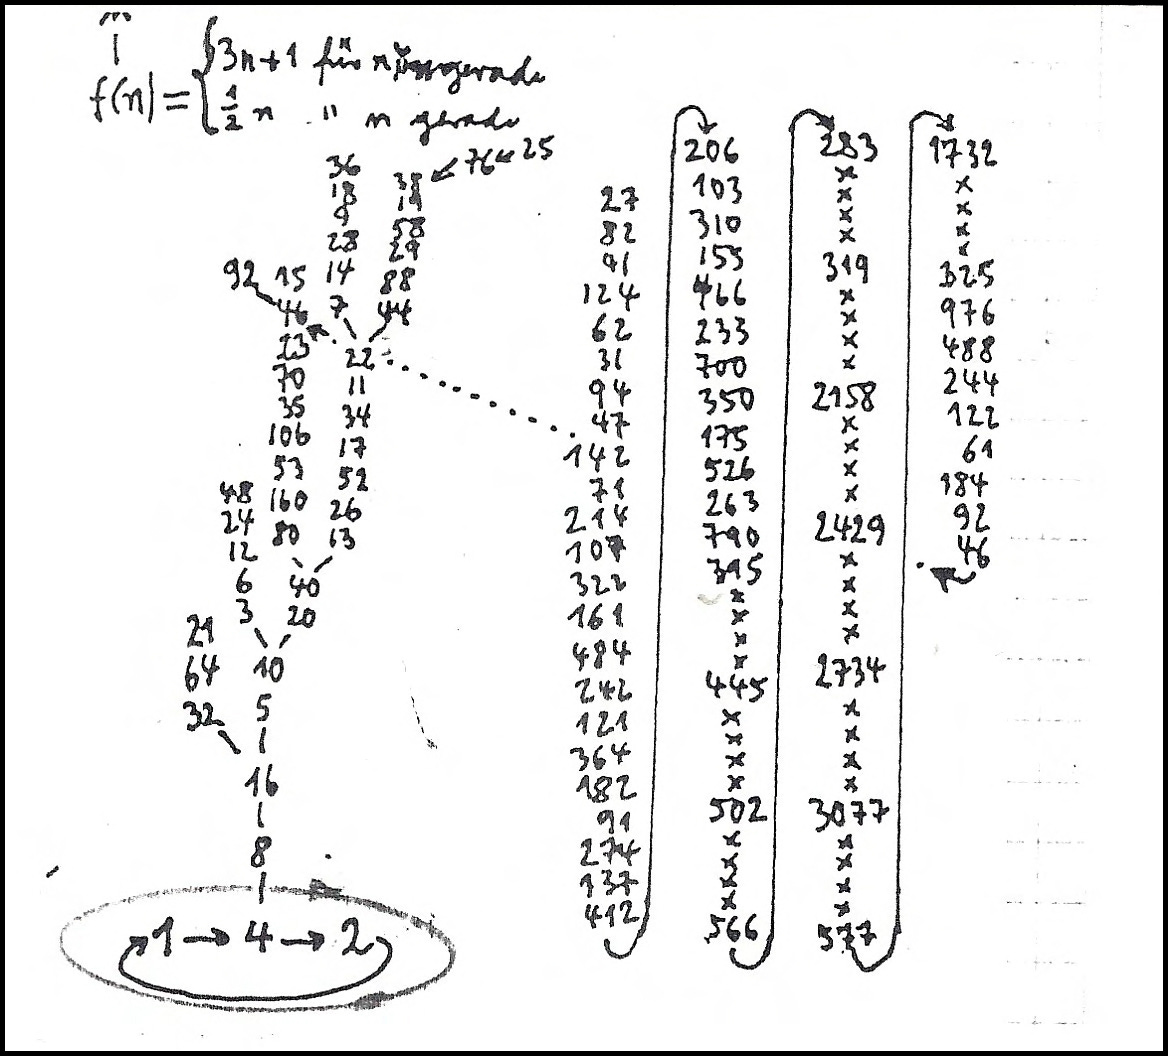 f(n) = { 3n+1 für n ungerade
1/2 n " n gerade
36
18
9
28
14
7
76 25
38
19
58
29
88
44
92
15
46
23
70
35
106
53
160
80
22
11
34
17
52
26
13
48
24
12
6
3
40
20
21
64
32
10
5
16
8
1 → 4 → 2
27
82
91
124
62
31
94
47
142
71
214
107
322
161
484
242
121
364
182
91
274
137
412
206
103
310
155
466
233
700
350
175
526
263
790
395
x
x
x
x
445
x
x
x
x
502
x
x
x
x
566
283
x
x
x
x
319
x
x
x
x
2158
x
x
x
x
2429
x
x
x
x
2734
x
x
x
x
3077
x
x
x
x
577
1732
x
x
x
x
325
976
488
244
122
61
184
92
46